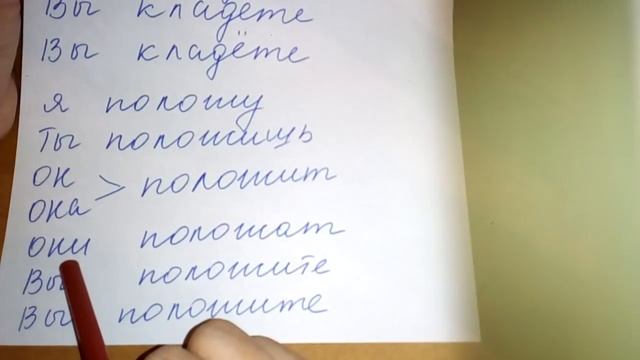 Вы кладёте
Вы кладёте
я положу
ты положишь
он > положит
она
они положат
Вы положите
Вы положите